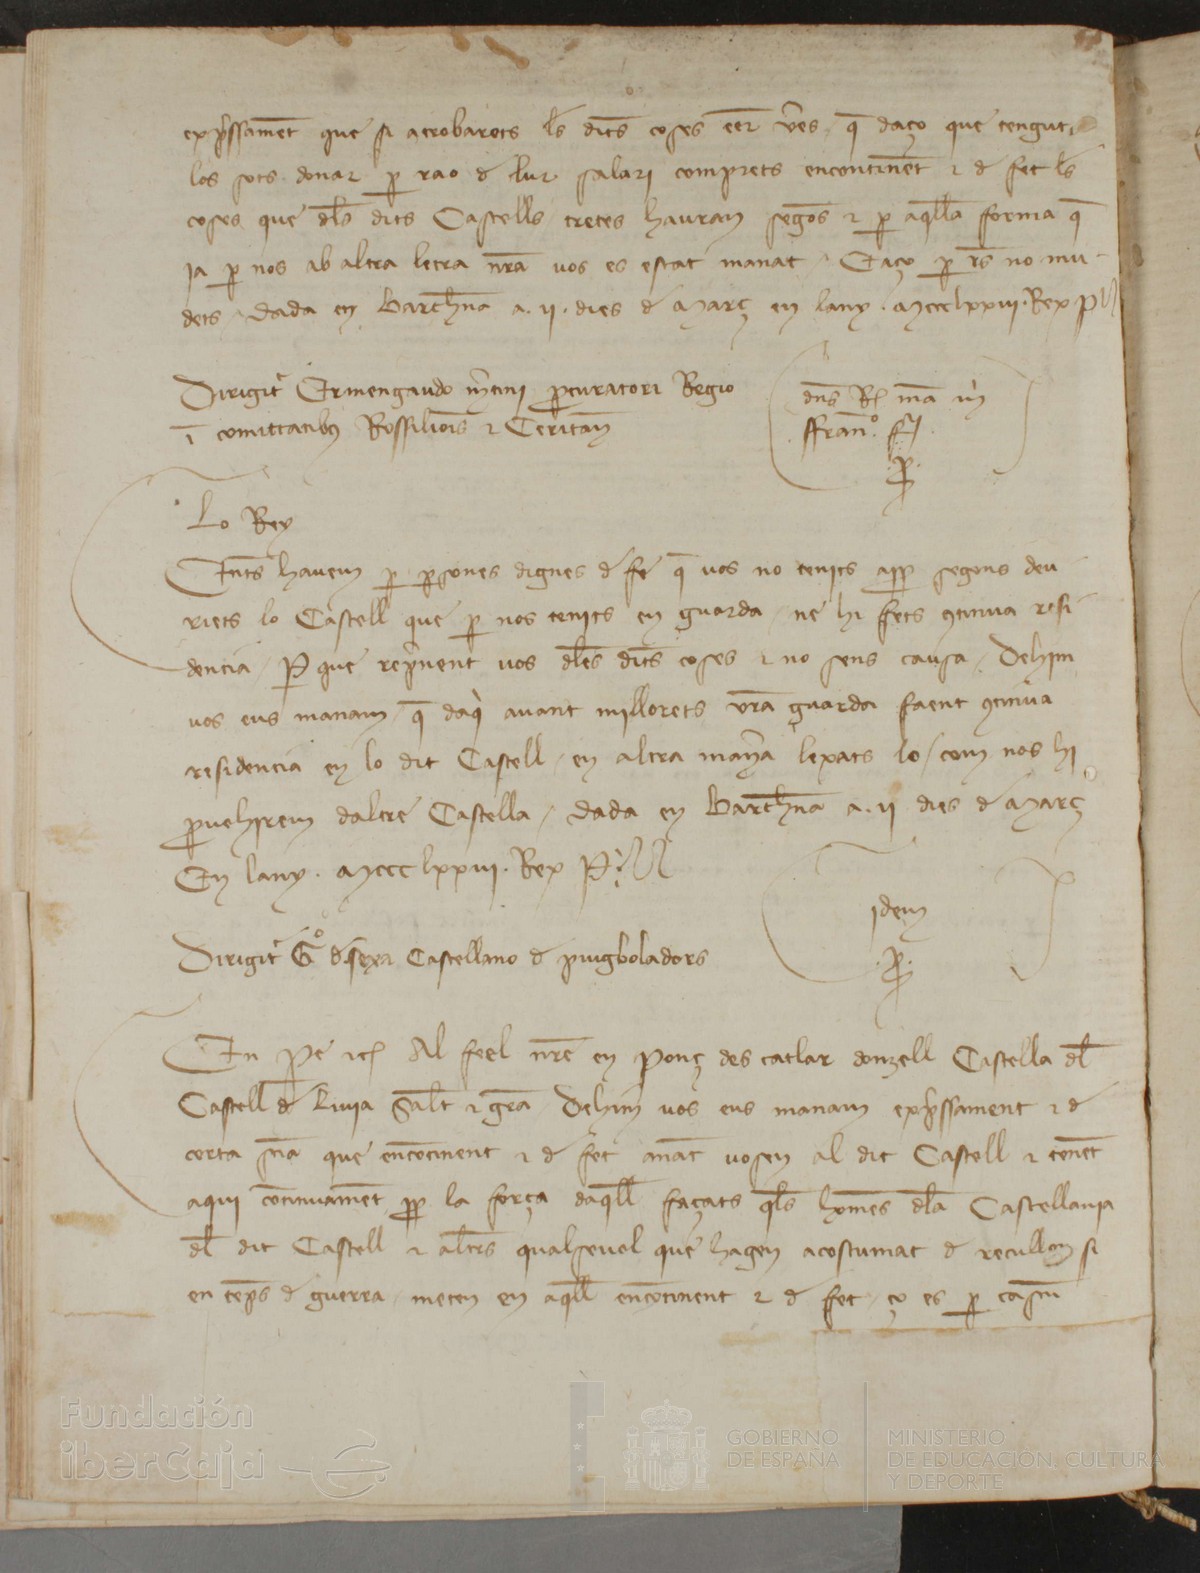 exp̃ssament que si atrobarets l̃s dits coses eer̃ ṽes q̃ daço que tengut
los sots donar p rao d̃ lur salari comprets encontinent ⁊ d̃ fet l̃s
coses que dl̃s dits Castells tretes hauran segõs ⁊ p aql̃la forma q̃
ja p nos ab altra letra nr̃a vos es estat manat / Eaço p r̃s no mu
dets / Dada en Barch̃na a .ii. dies d̃ Març en lany . Mccclxxvi . Rex P
Dirigit̃ Ermengaudo m̃tini p̱curatori Regio
ĩ comittatibꝫ Rossiliõis ⁊ Ceritañ
dñs Rͭ mã
ffranͨ .
p̱
Lo Rey
Entẽs havem p p̱sones dignes d̃ fe q̃ vos no tenits app̱ segons deu
riets lo Castell que p nos tenits en guarda / ne hi fets ꝯtinua resi
dencia / P que rep̃nent vos dl̃es dits coses ⁊ no sens causa / Dehim
vos eus manam q̃ daq̀ avant millorets vr̃a guarda faent ꝯtinua
residencia en lo dit Castell / en altra maña lexats lo / com nos hi
p̱vehirem daltre Castella / Dada en Barch̃na a .ii. dies d̃ Març
En lany . Mccclxxvi . Rex P
idem
p̱
Dirigit̃ Gͦ d̃ Castellano d̃ puigboladors
En Pe ⁊cͭ Al feel nr̃e en Ponç des catlar donzell Castella dl̃
Castell d̃ Livia Sal̃t ⁊ gr̃a Dehim vos eus manam exp̃ssament ⁊ d̃
certa sñia que encõtinent ⁊ d̃ fet anat vosen al dit Castell ⁊ tenẽt
aqui cõtinuamẽt p̱p̱ la força daql̃l façats ql̃s hom̃es dl̃a Castellania
dl̃ dit Castell ⁊ al̃tres qualsevol que hagen acostumat d̃ recullensi
en tẽps d̃ guerra / meten en aql̃l encõtinent ⁊ d̃ fet / ço es p
Fundación
iberCaja
GOBIERNO
DE ESPAÑA
MINISTERIO
DE EDUCACIÓN, CULTURA
Y DEPORTE